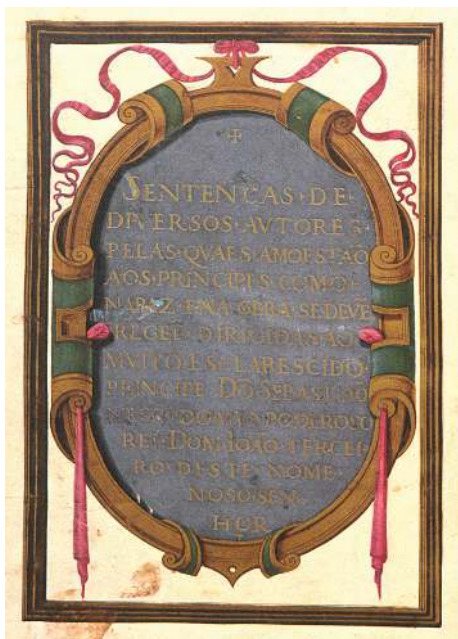 SENTENCAS · DE ·
DIVERSOS · AVTORES ·
PELAS · QVAES · AMOESTAÕ
AOS · PRINCIPES · COMO ·
NA PAZ · E NA GERA · SE DEVẼ
REGER · DIRIGIDAS AO
MVITO ESCLARESCIDO
PRINCIPE · DÕ SEBASTIÃO
NETO DO PODEROSO
REI · DOM · IOAÕ · TERCEI
RO · DESTE · NOME ·
NOSO · SEN
HOR